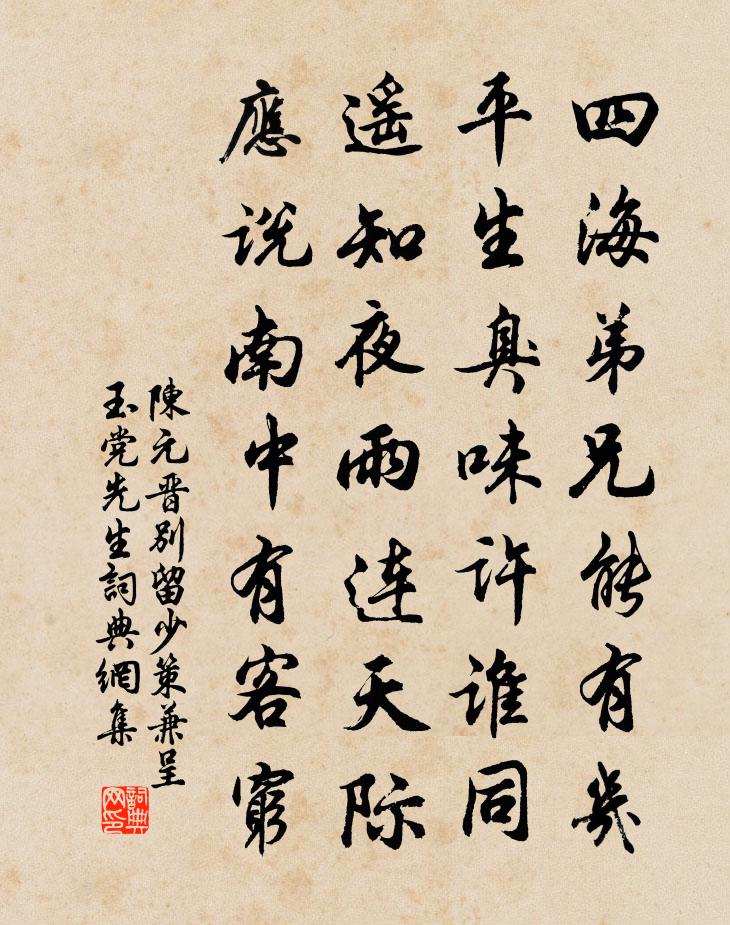 四海弟兄能有幾
平生臭味許谁同
遥知夜雨連天际
應说南中有客窮
陳元晋别留少策兼呈
玉党先生詞典網集
詞典
网印